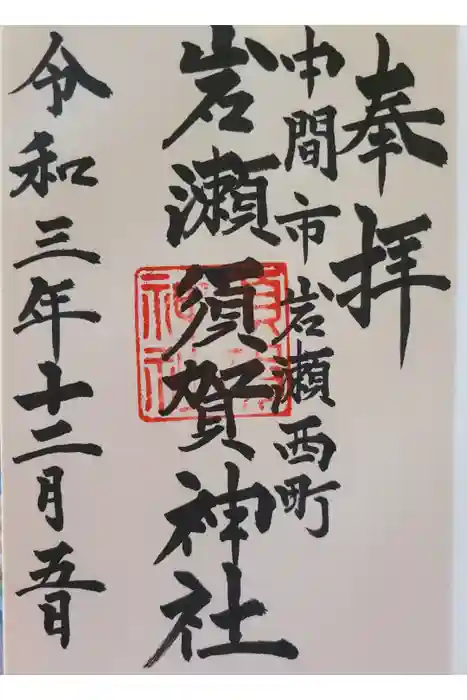 奉拝
中間市岩瀬西町
岩瀬須賀神社
令和三年十二月五日